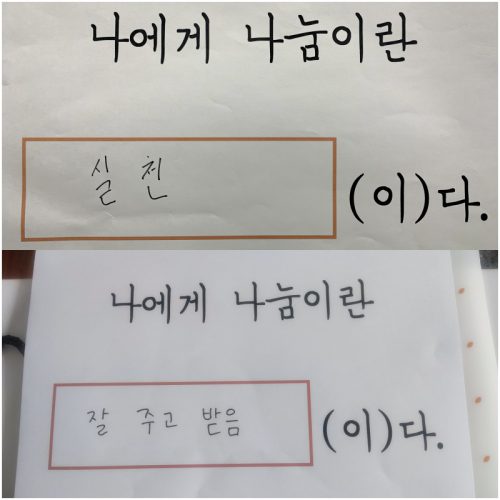 나에게 나눔이란
실천
(이)다.
나에게 나눔이란
잘 주고 받음
(이)다.